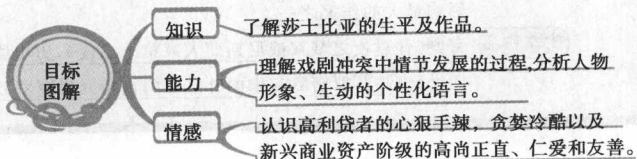 目标
图解
知识
了解莎士比亚的生平及作品。
能力
理解戏剧冲突中情节发展的过程,分析人物
形象、生动的个性化语言。
情感
认识高利贷者的心狠手辣，贪婪冷酷以及
新兴商业资产阶级的高尚正直、仁爱和友善。